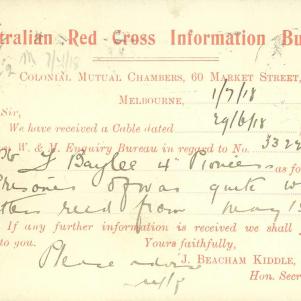 tralian Red Cross Information Bu
Colonial Mutual Chambers, 60 Market Street,
Melbourne, 1/7/18
Sir,
We have received a Cable dated 29/6/18
W. & M. Enquiry Bureau in regard to No. 332
Baylee 4th Pioneers as fo
Prisoner of was quite w
recd from May 1
If any further information is received we shall
to you. Yours faithfully,
J. Beacham Kiddle,
Hon. Secr
Please